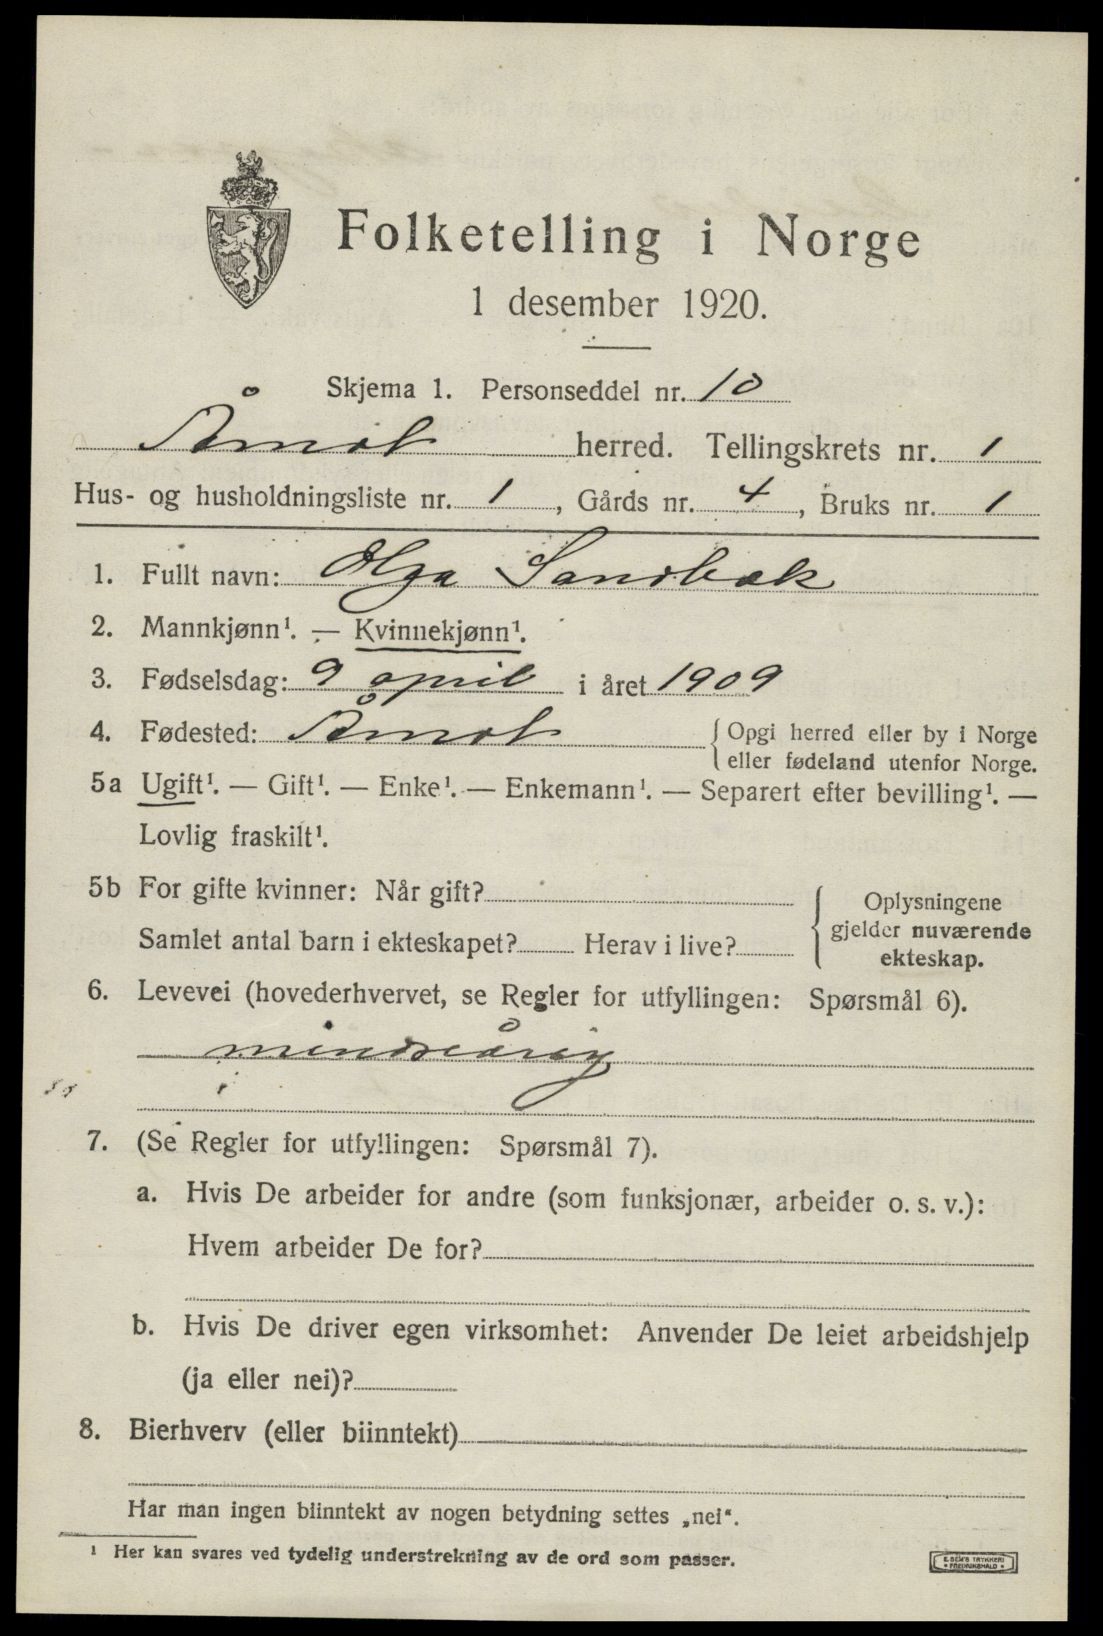 Folketelling i Norge
1 desember 1920.
Skjema 1. Personseddel nr. 10
Åmot herred. Tellingskrets nr. 1
Hus- og husholdningsliste nr. 1, Gårds nr. 4, Bruks nr. 1
1. Fullt navn: Olga Sandbæk
2. Mannkjønn¹. — Kvinnekjønn¹.
3. Fødselsdag: 9 april i året 1909
4. Fødested: Åmot { Opgi herred eller by i Norge
eller fødeland utenfor Norge.
5a Ugift¹. — Gift¹. — Enke¹. — Enkemann¹. — Separert efter bevilling¹. —
Lovlig fraskilt¹.
5b For gifte kvinner: Når gift?
Samlet antal barn i ekteskapet? Herav i live?
{ Oplysningene
gjelder nuværende
ekteskap.
6. Levevei (hovederhvervet, se Regler for utfyllingen: Spørsmål 6).
mindreårig
7. (Se Regler for utfyllingen: Spørsmål 7).
a. Hvis De arbeider for andre (som funksjonær, arbeider o. s. v.):
Hvem arbeider De for?
b. Hvis De driver egen virksomhet: Anvender De leiet arbeidshjelp
(ja eller nei)?
8. Bierhverv (eller biinntekt)
Har man ingen biinntekt av nogen betydning settes „nei“.
¹ Her kan svares ved tydelig understrekning av de ord som passer.
E. SEM'S TRYKKERI
• FREDRIKSHALD •